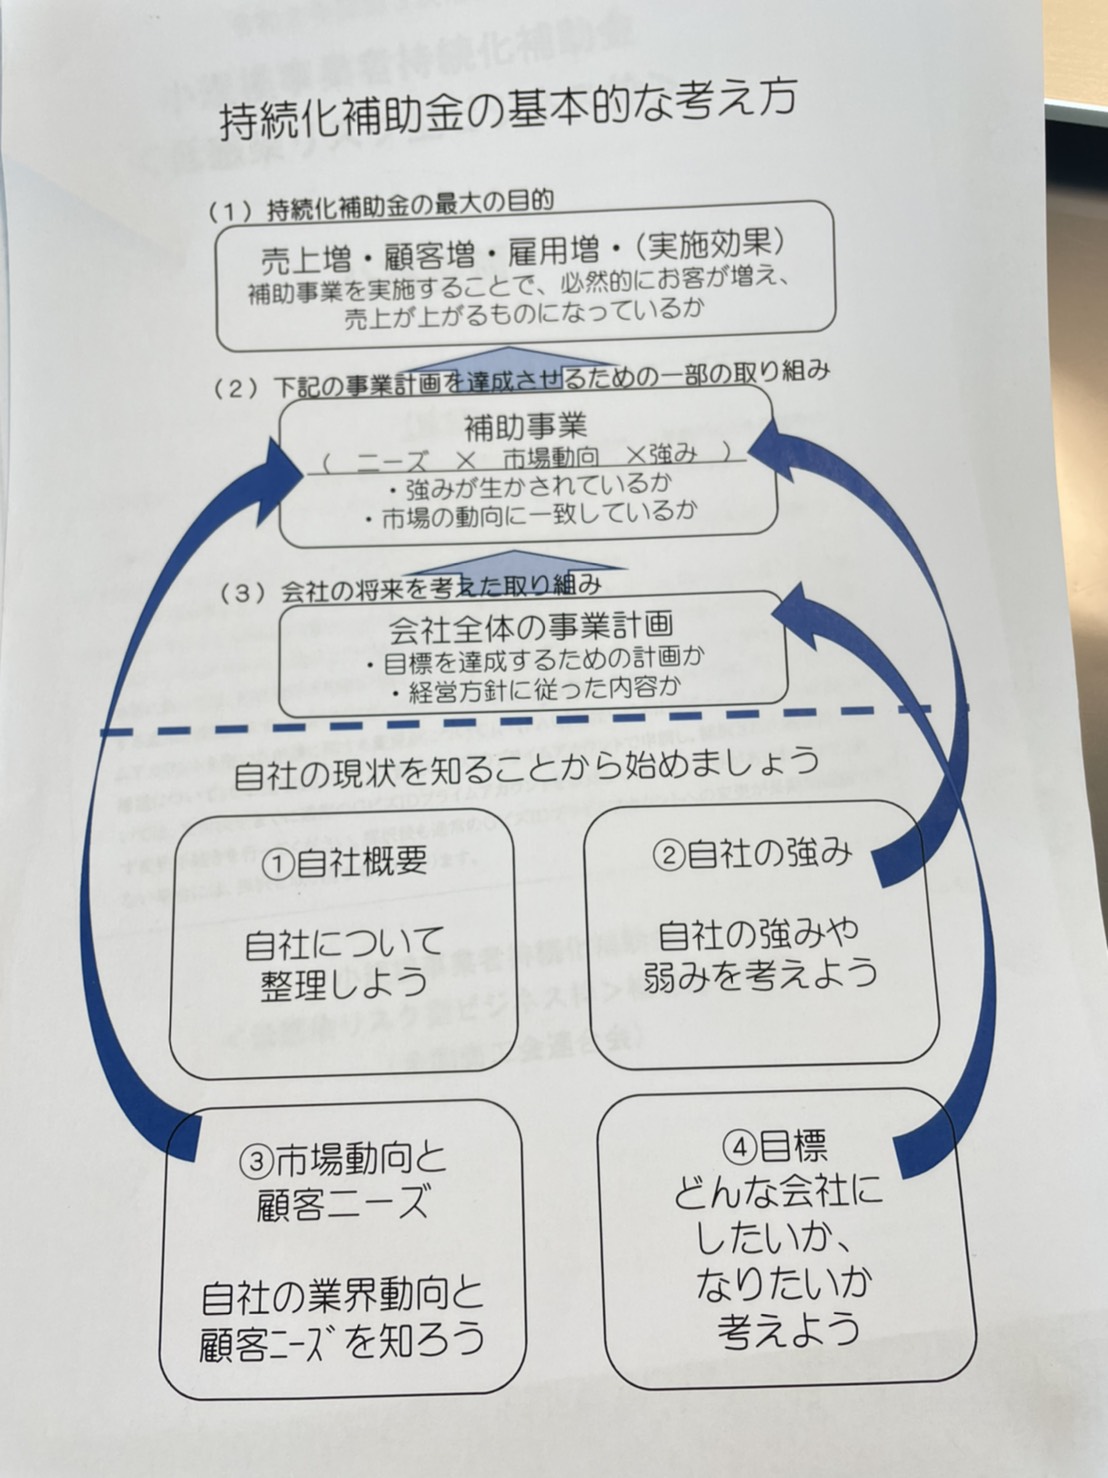 持続化補助金の基本的な考え方
（１）持続化補助金の最大の目的
売上増・顧客増・雇用増・（実施効果）
補助事業を実施することで、必然的にお客が増え、
売上が上がるものになっているか
（２）下記の事業計画を達成させるための一部の取り組み
補助事業
（　ニーズ　×　市場動向　×強み　）
・強みが生かされているか
・市場の動向に一致しているか
（３）会社の将来を考えた取り組み
会社全体の事業計画
・目標を達成するための計画か
・経営方針に従った内容か
自社の現状を知ることから始めましょう
①自社概要
自社について
整理しよう
②自社の強み
自社の強みや
弱みを考えよう
③市場動向と
顧客ニーズ
自社の業界動向と
顧客ﾆｰｽﾞを知ろう
④目標
どんな会社に
したいか、
なりたいか
考えよう